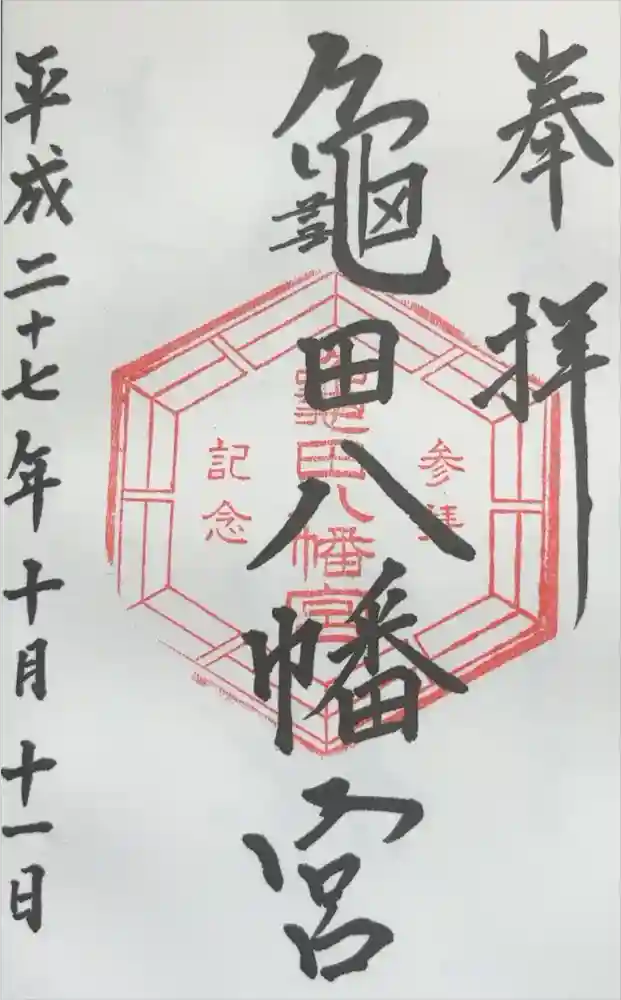 奉拝
龜田八幡宮
平成二十七年十月十一日
参拝
龜田八幡宮
記念